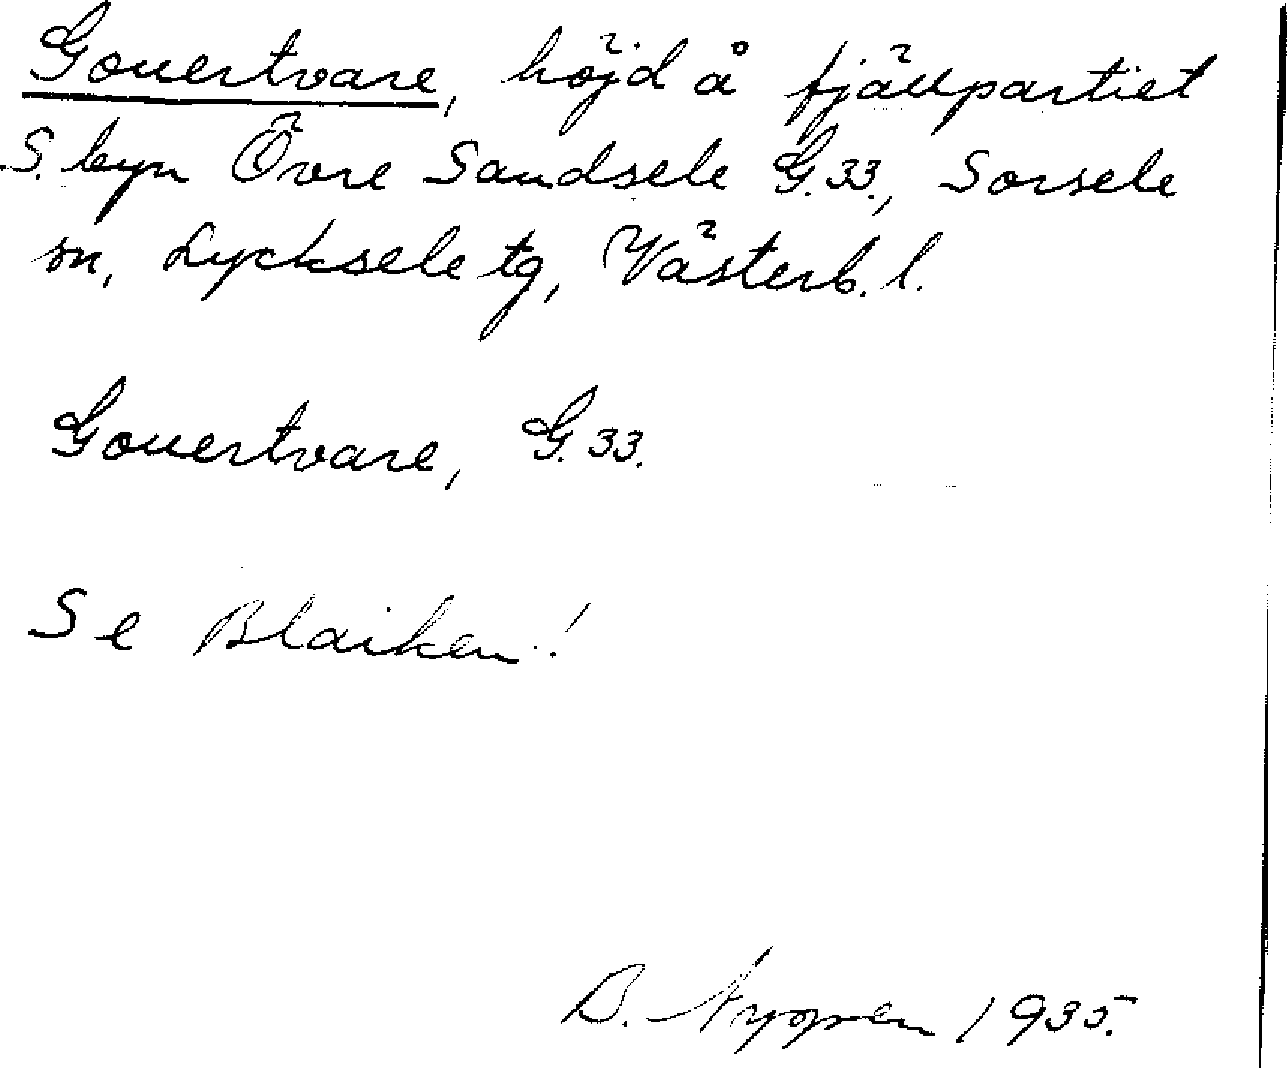 Gouertvare, höjd å fjällpartiet
S. byn Övre Sandsele G.33., Sorsele
sn, Lycksele tg, Västerb. l.
Gouertvare, G.33.
Se Blaiken!
B. 1935.